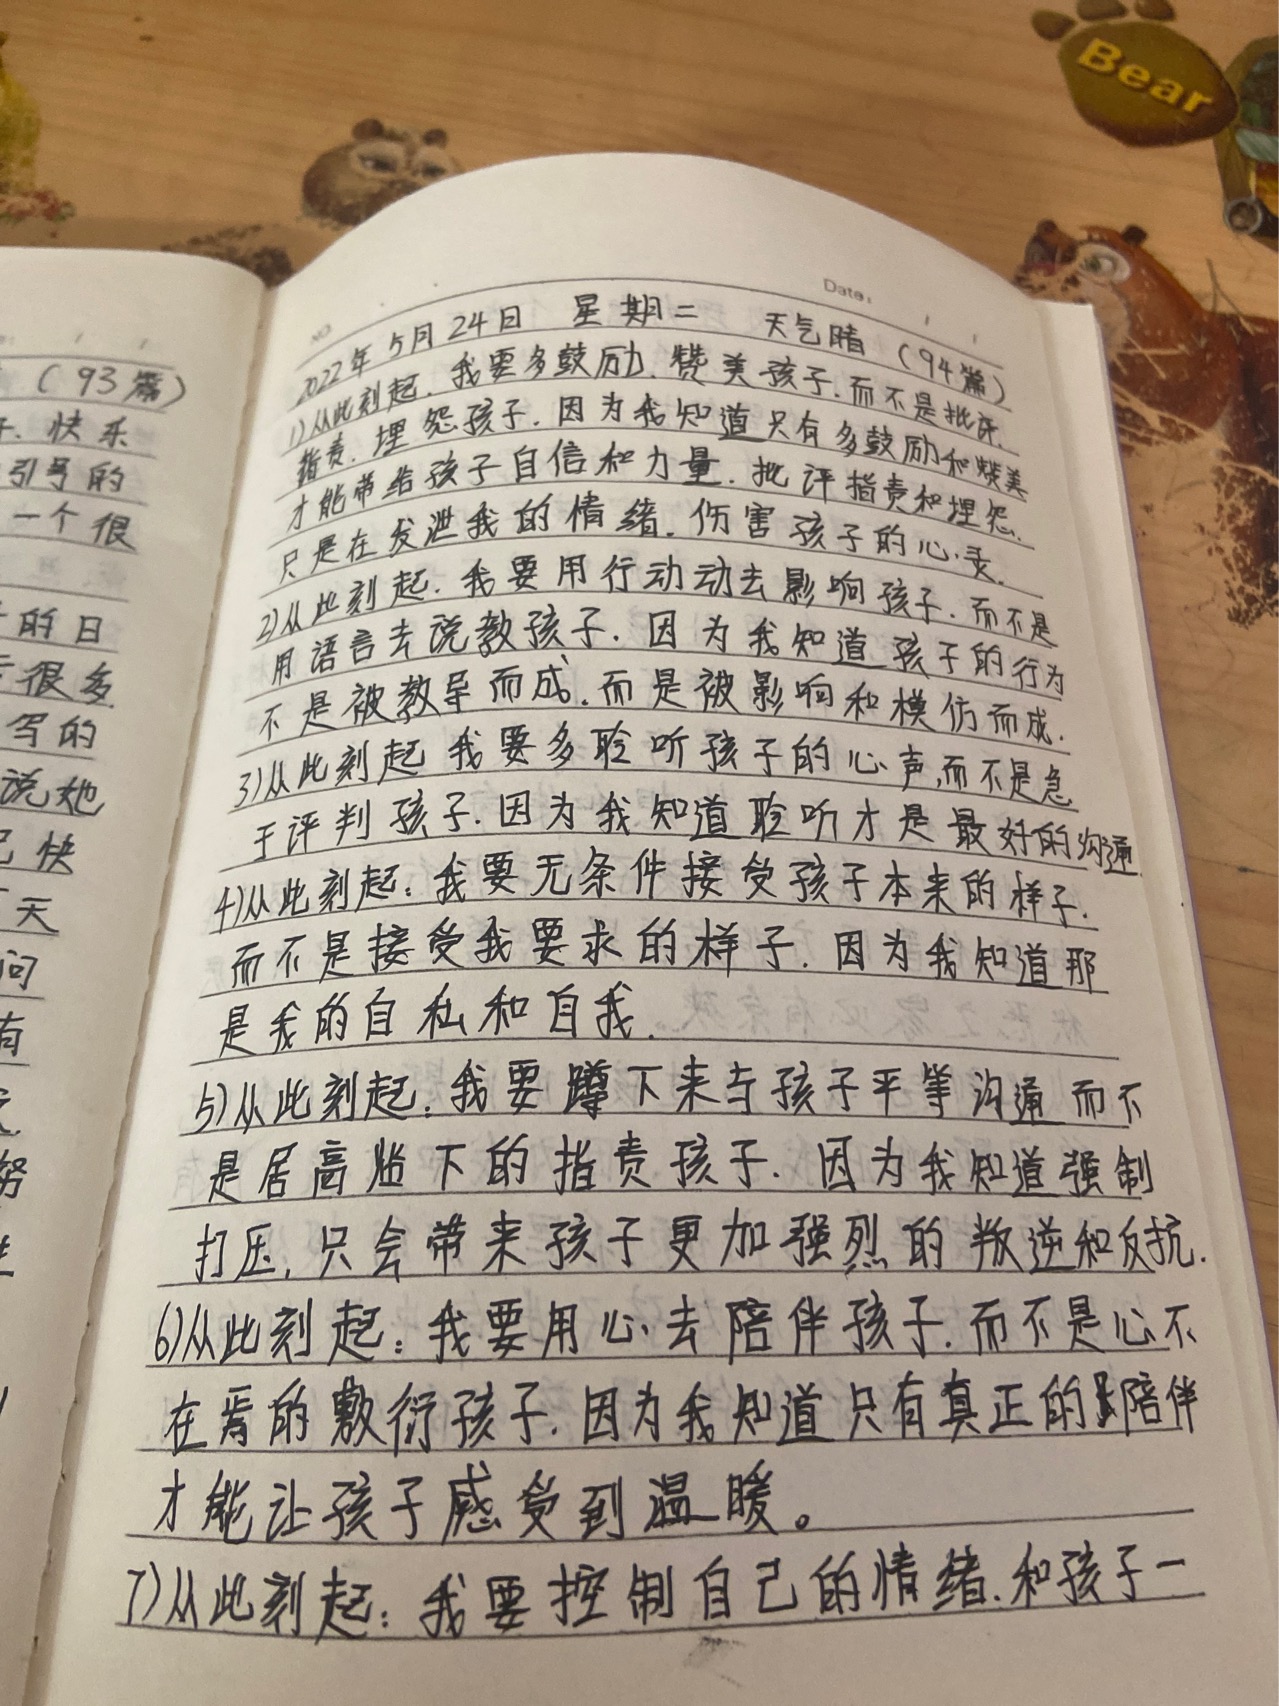 Bear
Date:
NO.
(93篇)
快乐
引号的
一个很
的日
很多
写的
说她
快
天
问
有
2022年5月24日 星期二 天气晴 (94篇)
1)从此刻起.我要多鼓励.赞美孩子.而不是批评.
指责.埋怨孩子.因为我知道只有多鼓励和赞美
才能带给孩子自信和力量.批评指责和埋怨.
只是在发泄我的情绪.伤害孩子的心灵.
2)从此刻起.我要用行动动去影响孩子.而不是
用语言去说教孩子.因为我知道孩子的行为
不是被教导而成.而是被影响和模仿而成.
3)从此刻起 我要多聆听孩子的心声,而不是急
于评判孩子.因为我知道聆听才是最好的沟通.
4)从此刻起:我要无条件接受孩子本来的样子.
而不是接受我要求的样子.因为我知道那
是我的自私和自我.
5)从此刻起:我要蹲下来与孩子平等沟通 而不
是居高临下的指责孩子.因为我知道强制
打压,只会带来孩子更加强烈的叛逆和反抗.
6)从此刻起:我要用心去陪伴孩子.而不是心不
在焉的敷衍孩子.因为我知道只有真正的陪伴
才能让孩子感受到温暖。
7)从此刻起:我要控制自己的情绪.和孩子一